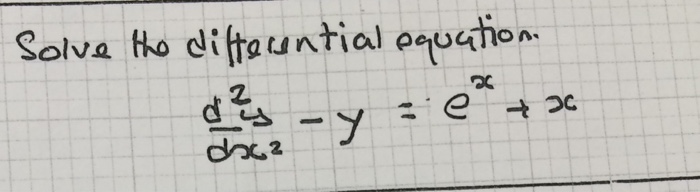 Solve the differential equation.
d²y/dx² - y = eˣ + x